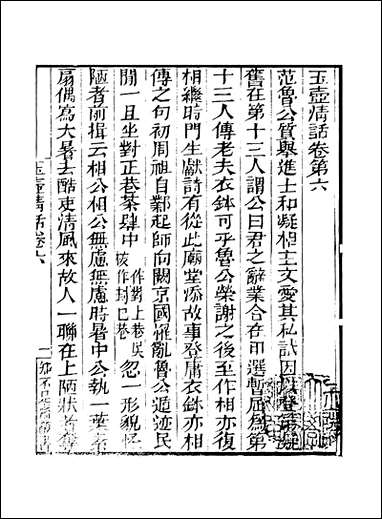 玉壺清話卷第六
范魯公質舉進士和凝相主文愛其私試因以登第凝
舊在第十三人謂公曰君之辭業合在甲選暫屈為第
十三人傳老夫衣鉢可乎魯公榮謝之後至作相亦復
相繼時門生獻詩有從此廟堂添故事登庸衣鉢亦相
傳之句初周祖自鄴起師向闕京國罹亂魯公遁迹民
間一旦坐對正巷茶肆中
作對上巷民
放作封巳巷
忽一形貌怪
陋者前揖云相公相公無慮無慮時暑中公執一葉素
扇偶寫大暑去酷吏清風來故人一聯在上陋狀者奪
玉壺清話卷六
一
知不足齋叢書